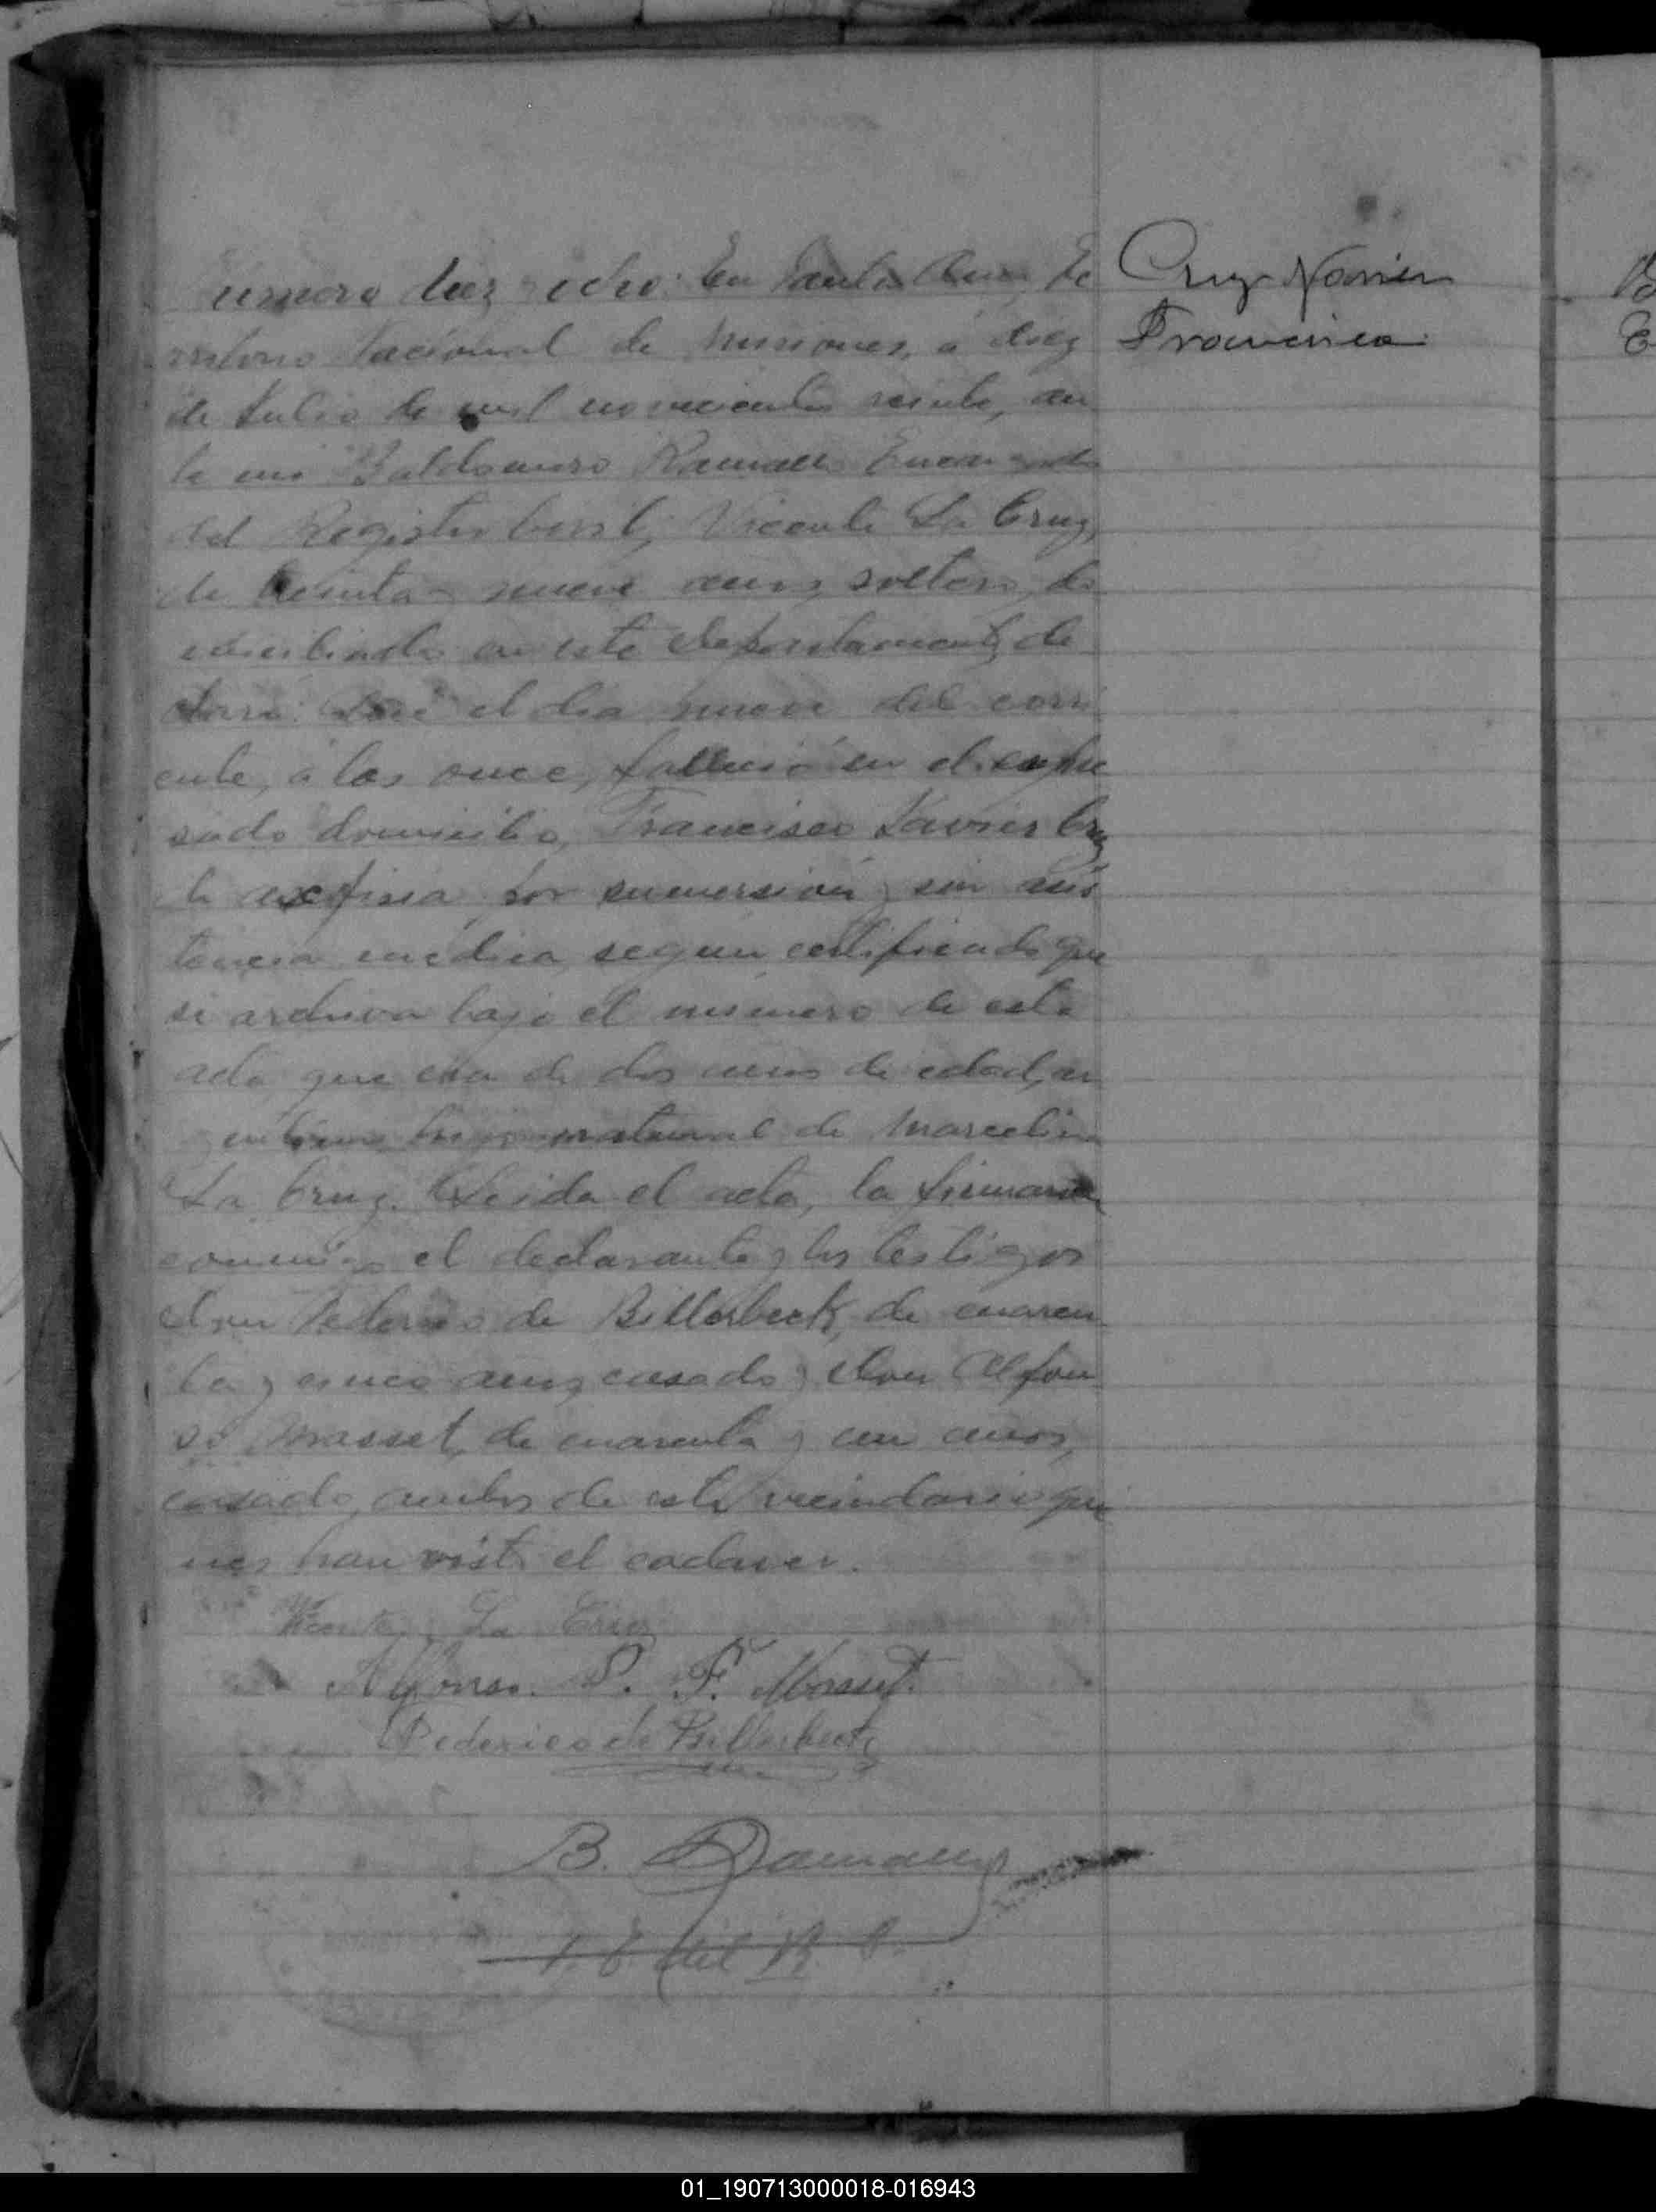 Cruz Xavier
Francisco
Número diez y ocho: En Santa Ana, Te
rritorio Nacional de Misiones, á diez
de Julio de mil novecientos veinte, an
te mi Baldomero Encargado
del Registro Civil, Vicente La Cruz,
de treinta y nueve años, soltero, do
miciliado en este departamento, de
claró: Que el dia nueve del corri
ente, á las once, falleció en el expre
sado domicilio, Francisco Xavier Cruz
de axfisia por sumersión, sin asis
tencia médica, segun certificado que
se archiva bajo el número de esta
acta, que era de dos años de edad, ar
gentino, hijo natural de Marcelina
La Cruz. Leida el acta, la firmaron
conmigo el declarante y los testigos
don Federico de Billerbeck, de cuaren
ta y cinco años, casado y don Alfon
so Masset, de cuarenta y un años,
casado, ambos de este vecindario quie
nes han visto el cadaver.
Vicente La Cruz
Alfonso. P. F. Masset.
Federico de Billerbeck
B.
E. del R. C.
01_190713000018-016943